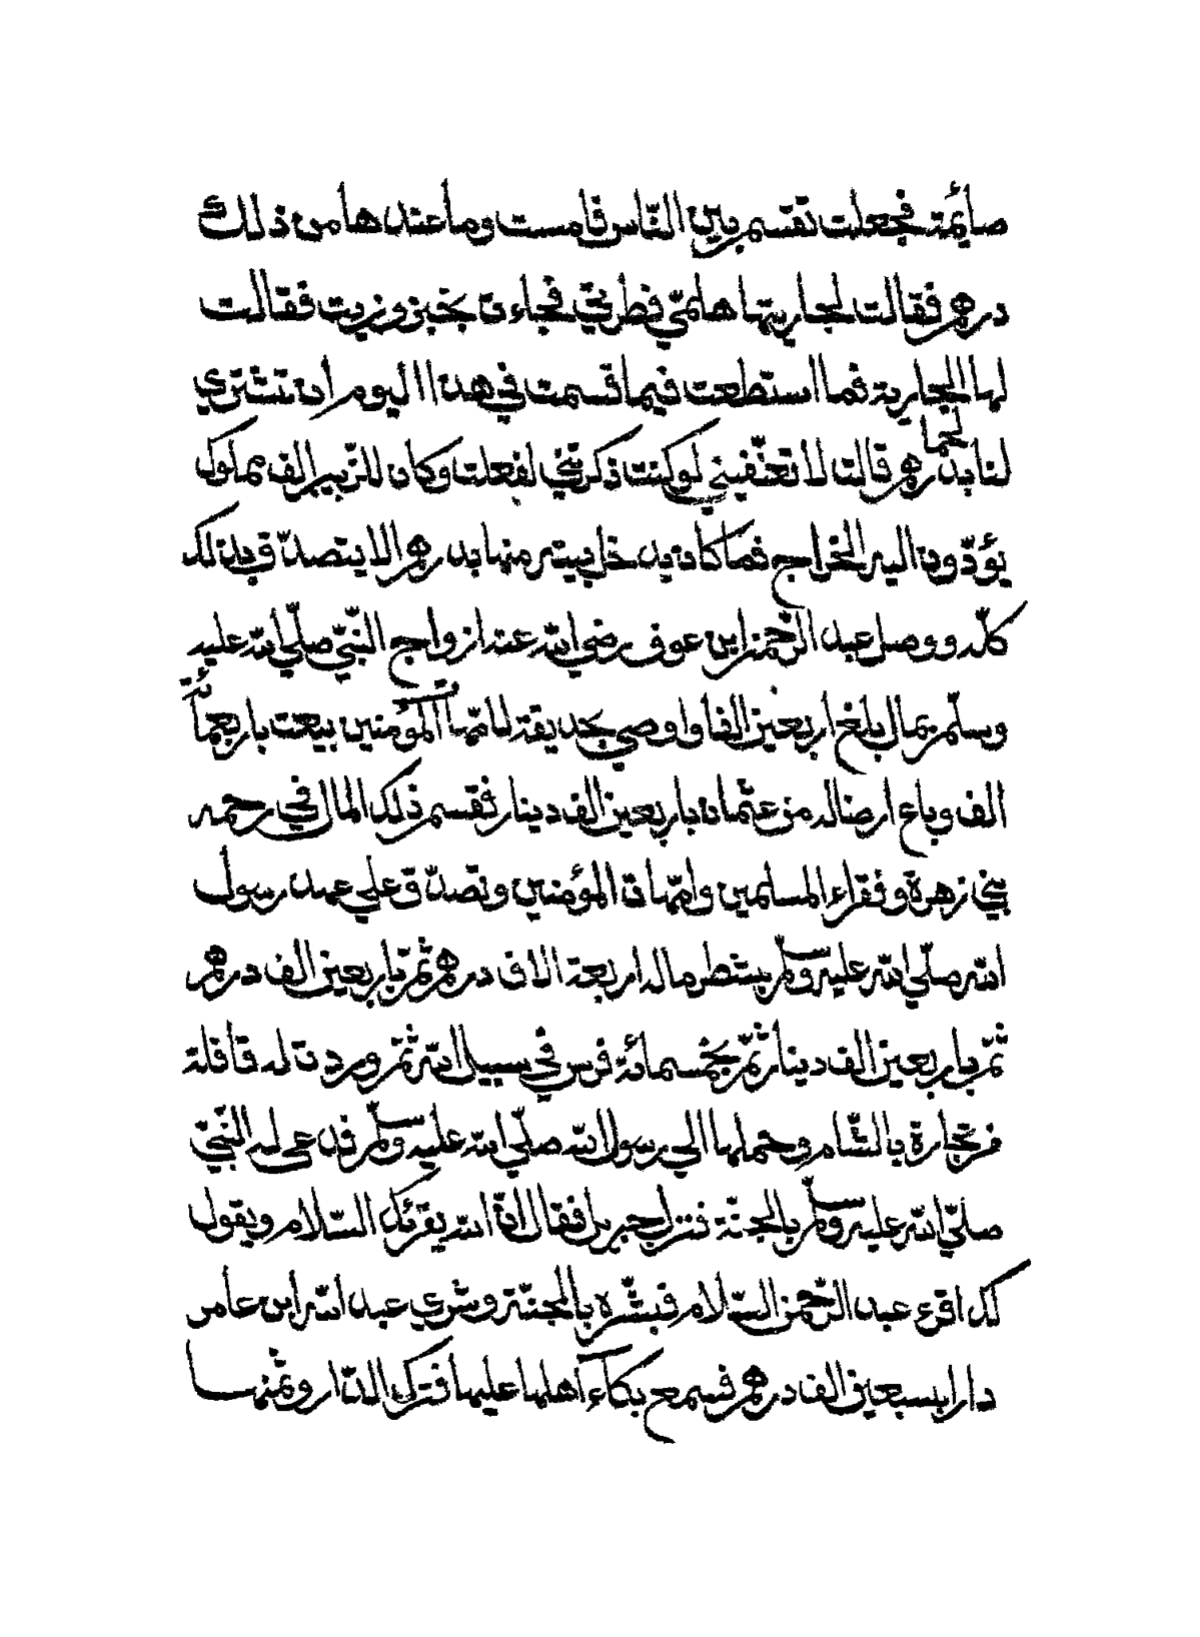 صائمة فجعلت تقسم بين الناس فامست وما عندها من ذلك
درهم فقالت لجاريتها هلمّي فطريني فجاءت بخبز وزيت فقالت
لها الجارية فما استطعت فيما قسمت في هذا اليوم ان تشتري
لنا بدرهم لحما قالت لا تعنّفيني لو كنت ذكرتني لفعلت وكان للزبير الف مملوك
يؤدّون اليه الخراج فما كان يدخل بيته منها بدرهم الا يتصدّق بذلك
كلّه ووصل عبد الرّحمن ابن عوف رضي الله عنه ازواج النبيّ صلّي الله عليه
وسلّم بمال بلغ اربعين الفا واوصي بحديقة لامّهات المؤمنين بيعت باربعمائة
الف وباع ارضا له من عثمان باربعين الف دينار فقسم ذلك المال في رحمه
بني زهرة وفقراء المسلمين وامّهات المؤمنين وتصدّق علي عهد رسول
الله صلّي الله عليه وسلّم بشطر ماله اربعة الاف درهم ثمّ باربعين الف درهم
ثمّ باربعين الف دينار ثمّ بخمسمائة فرس في سبيل الله ثمّ وردت له قافلة
من تجارة بالشّام وحملها الي رسول الله صلّي الله عليه وسلّم فدعي له النّبيّ
صلّي الله عليه وسلّم بالجنّة فنزل جبريل فقال انّ الله يقرئك السّلام ويقول
لك اقرء عبد الرّحمن السّلام فبشّره بالجنّة وشري عبد الله ابن عامر
دارا بسبعين الف درهم فسمع بكآء آهلها عليها فترك الدّار وثمنها